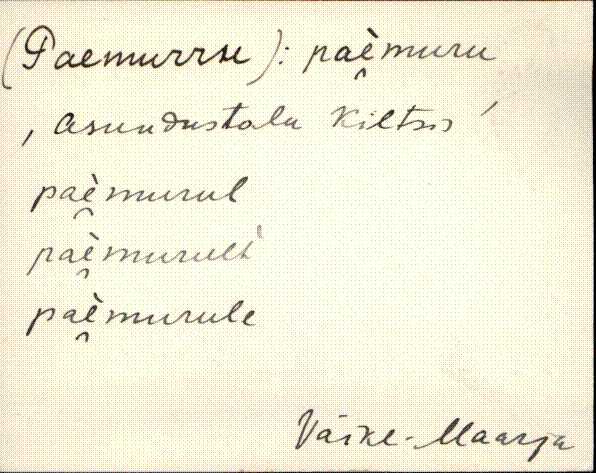 (Paemurru): paè̯muru
‚asundustalu Kiltsis’
paè̯murul
paè̯murult
paè̯murule
Väike-Maarja